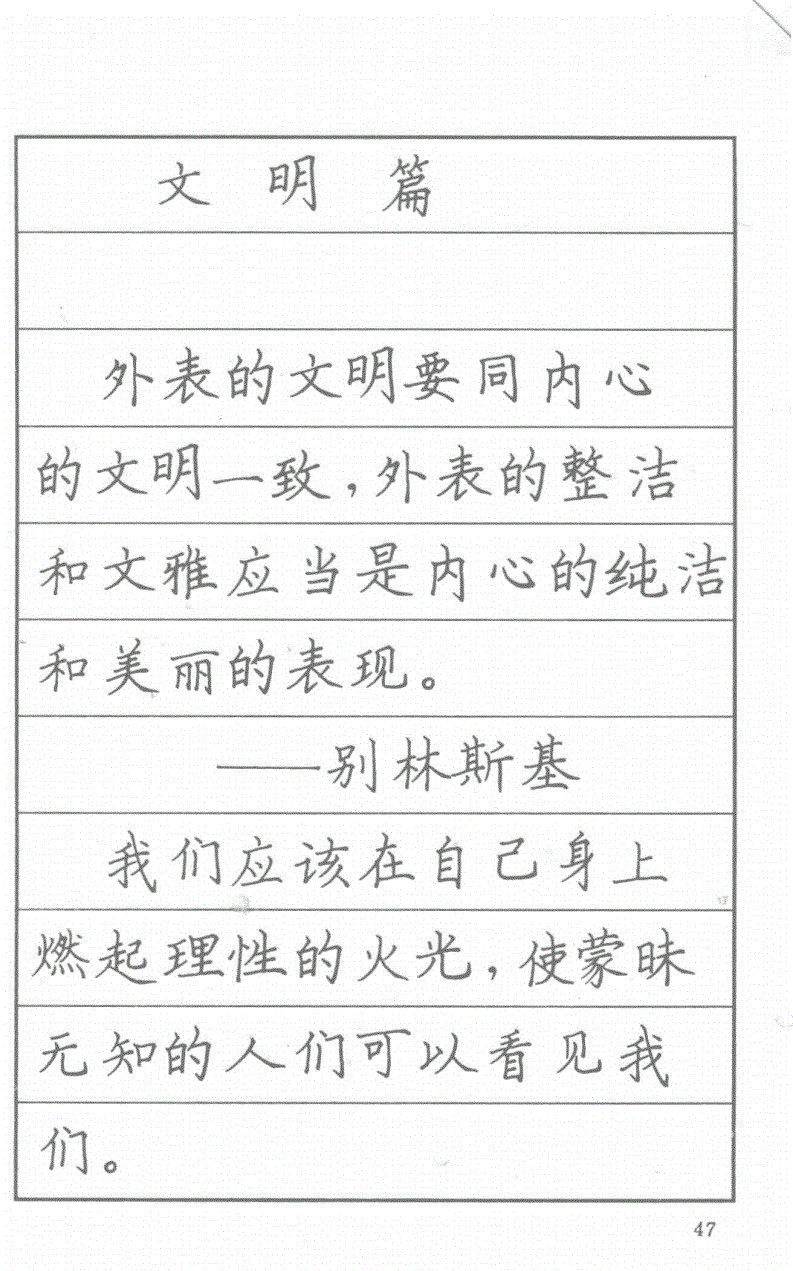 文明篇
外表的文明要同内心
的文明一致，外表的整洁
和文雅应当是内心的纯洁
和美丽的表现。
——别林斯基
我们应该在自己身上
燃起理性的火光，使蒙昧
无知的人们可以看见我
们。
47